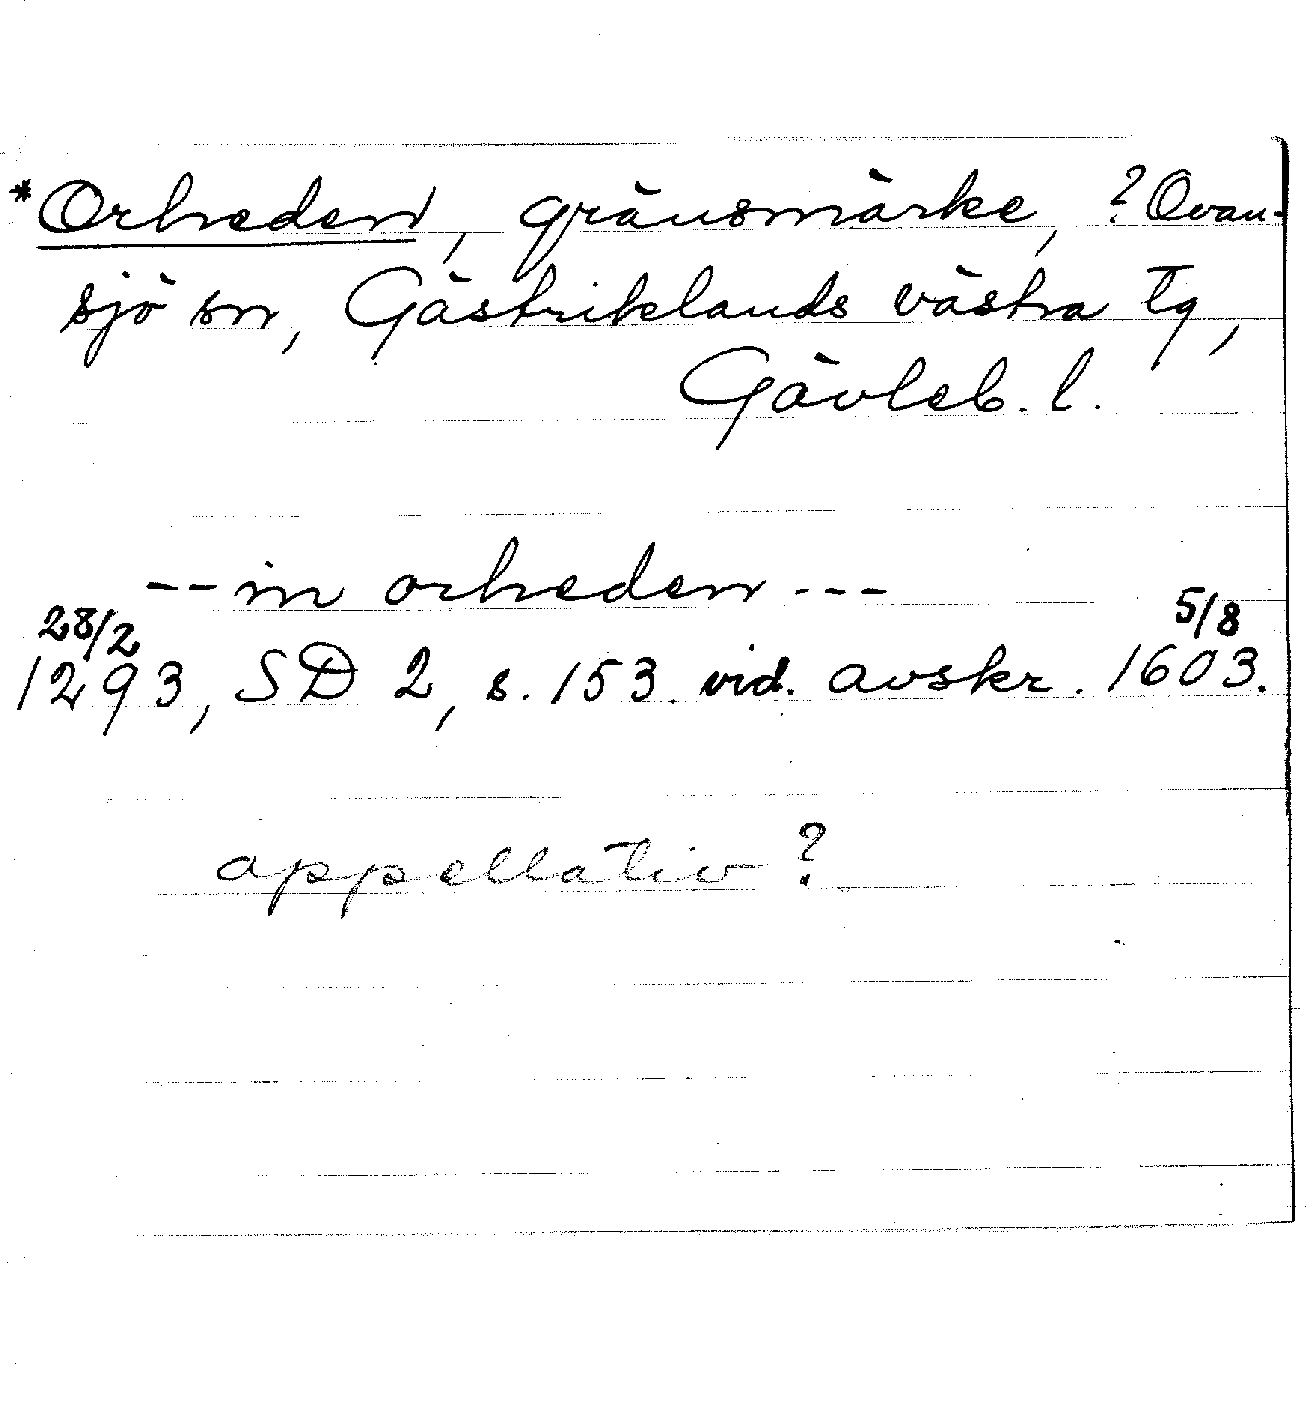 *Orheden, gränsmärke, ? Ovan-
sjö sn, Gästriklands västra tg,
Gävleb. l.
-- in orheden ---
28/2 5/8
1293, SD 2, s. 153 vid. avskr. 1603.
appellativ?